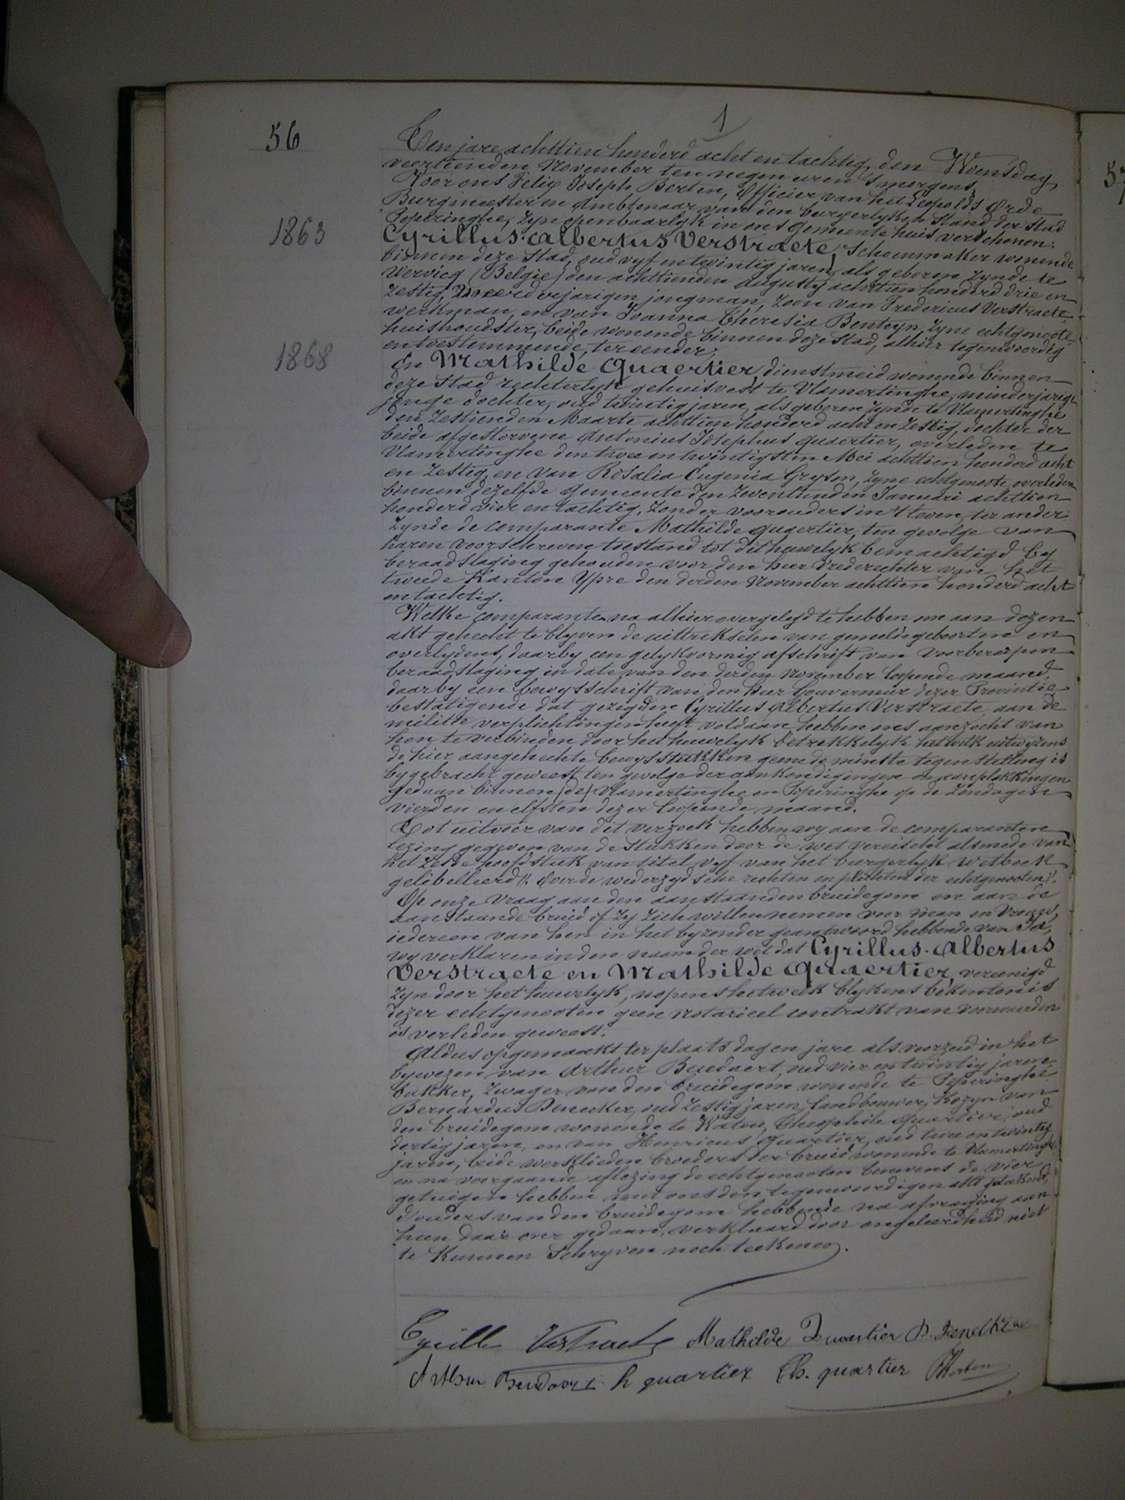 1
56
Ten jare achttien honderd acht en tachtig, den Woensdag
veertienden November ten negen uren 's morgens,
Voor ons Felix Joseph Berten, Officier van het Leopolds Orde
Burgmeester en Ambtenaar van den burgerlyken Stand der Stad
Poperinghe, zyn openbaarlyk in ons gemeentehuis verschenen:
1863
Cyrillus-Albertus Verstraete, Schoenmaker wonende
binnen deze Stad, oud vyf en twintig jaren, als geboren zynde te
Wervicq (Belgie) den achttienden Augusty achttien honderd drie en
zestig, meerderjarigen jongman, zoon van Fredericus Verstraete
werkman, en van Joanna Theresia Benteyn, zyne echtgenoote
huishoudster, beide wonende binnen deze Stad, alhier tegenwoordig
en toestemmende, ter eender;
1868
En Mathilde Quaertier, dienstmeid wonende binnen
deze Stad rechterlyk gehuisvest te Vlamertinghe, minderjarige
jonge dochter, oud twintig jaren, als geboren zynde te Vlamertinghe
den zestienden Maarte achttien honderd acht en zestig, dochter der
beide afgestorvene Antonius Josephus Quaertier, overleden te
Vlamertinghe den twee en twintigsten Mei achttien honderd acht
en zestig, en van Rosalia Eugenia Gryson, zyne echtgenoote overleden
binnen dezelfde gemeente den zeventienden Januari achttien
honderd vier en tachtig, zonder voorouders in 't leven, ter ander
zynde de comparante Mathilde Quaertier, ten gevolge van
haren voorschreven toestand tot dit huwelyk bemachtigd by
beraadslaging gehouden voor den heer Vrederechter van het
tweede Kanton Ypre den derden November achttien honderd acht
en tachtig.
Welke comparanten na alhier overgelegd te hebben om aan dezen
akt gehecht te blyven de uittreksels van gemelde geboorten en
overlydens, daarby een gelykvormig afschrift van voorberoepen
beraadslaging in date van den derden November loopende maand,
daarby een bewysschrift van den heer Gouverneur dezer Provintie
bestatigende dat gezegden Cyrillus Albertus Verstraete, aan de
militie verplichtingen heeft voldaan, hebben ons aanzocht van
hen te verbinden door het huwelyk betrekkelyk hetwelk uitwyzens
de hier aangehechte bewysstukken geene de minste tegenstelling is
bygebracht geweest ten gevolge der aankondigingen de aanplakkingen
gedaan binnen Vlamertinghe en Poperinghe op de Zondagen
vierden en elfsten dezer loopende maand.
Tot uitvoer van dit verzoek hebben wy aan de comparanten
lezing gegeven van de stukken door de wet vereischt alsmede van
het zesde hoofdstuk van titel vyf van het burgerlyk wetboek
gelibelleerd (Over de wederzydsche rechten en plichten der echtgenooten).
Op onze vraag aan den aanstaanden bruidegom en aan de
aanstaande bruid of zy zich willen nemen voor man en vrouw,
iedereen van hen in het byzonder geantwoord hebbende van Ja,
wy verklaren in den naam der wet dat Cyrillus-Albertus
Verstraete en Mathilde Quaertier, vereenigd
zyn door het huwelyk, nopens hetwelk blykens bekenten is
dezer echtgenooten geen notarieel contrakt van voorwaarden
is verleden geweest.
Aldus opgemaakt ter plaats dag en jare als voorzeid in het
bywezen van Arthur Beudaert, oud vier en twintig jaren
bakker, zwager van den bruidegom wonende te Poperinghe
Bernardus Denecker, oud zestig jaren, landbouwer, kozyn van
den bruidegom wonende te Watou, Theophile Quartier, oud
dertig jaren, en van Henricus Quartier, oud twee en twintig
jaren, beide werklieden broeders der bruid wonende te Vlamertinghe
en na voorgaande aflezing de echtgenooten benevens de vier
getuigen hebben met ons den tegenwoordigen akt geteekend,
d'ouders van den bruidegom hebbende na afvraging aan
hun daar over gedaan, verklaard door ongeleerdheid niet
te kunnen Schryven noch teekenen.
Cyrille Verstraete Mathilde Quartier B. Denecker
Arthur Beudaert h quartier Th. quartier Berten